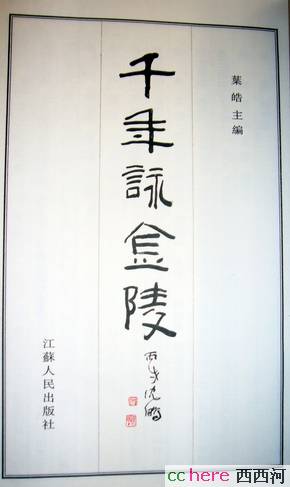 葉皓主編
千年詠金陵
丙戌沈鵬
江蘇人民出版社
cchere 西西河